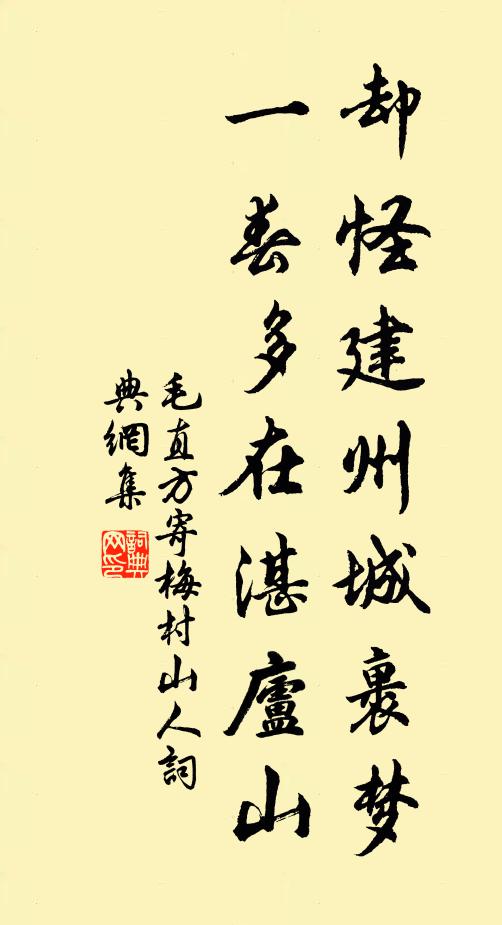 却怪建州城裏梦
一春多在湛廬山
毛直方寄梅村山人詞
典網集
詞典
网印